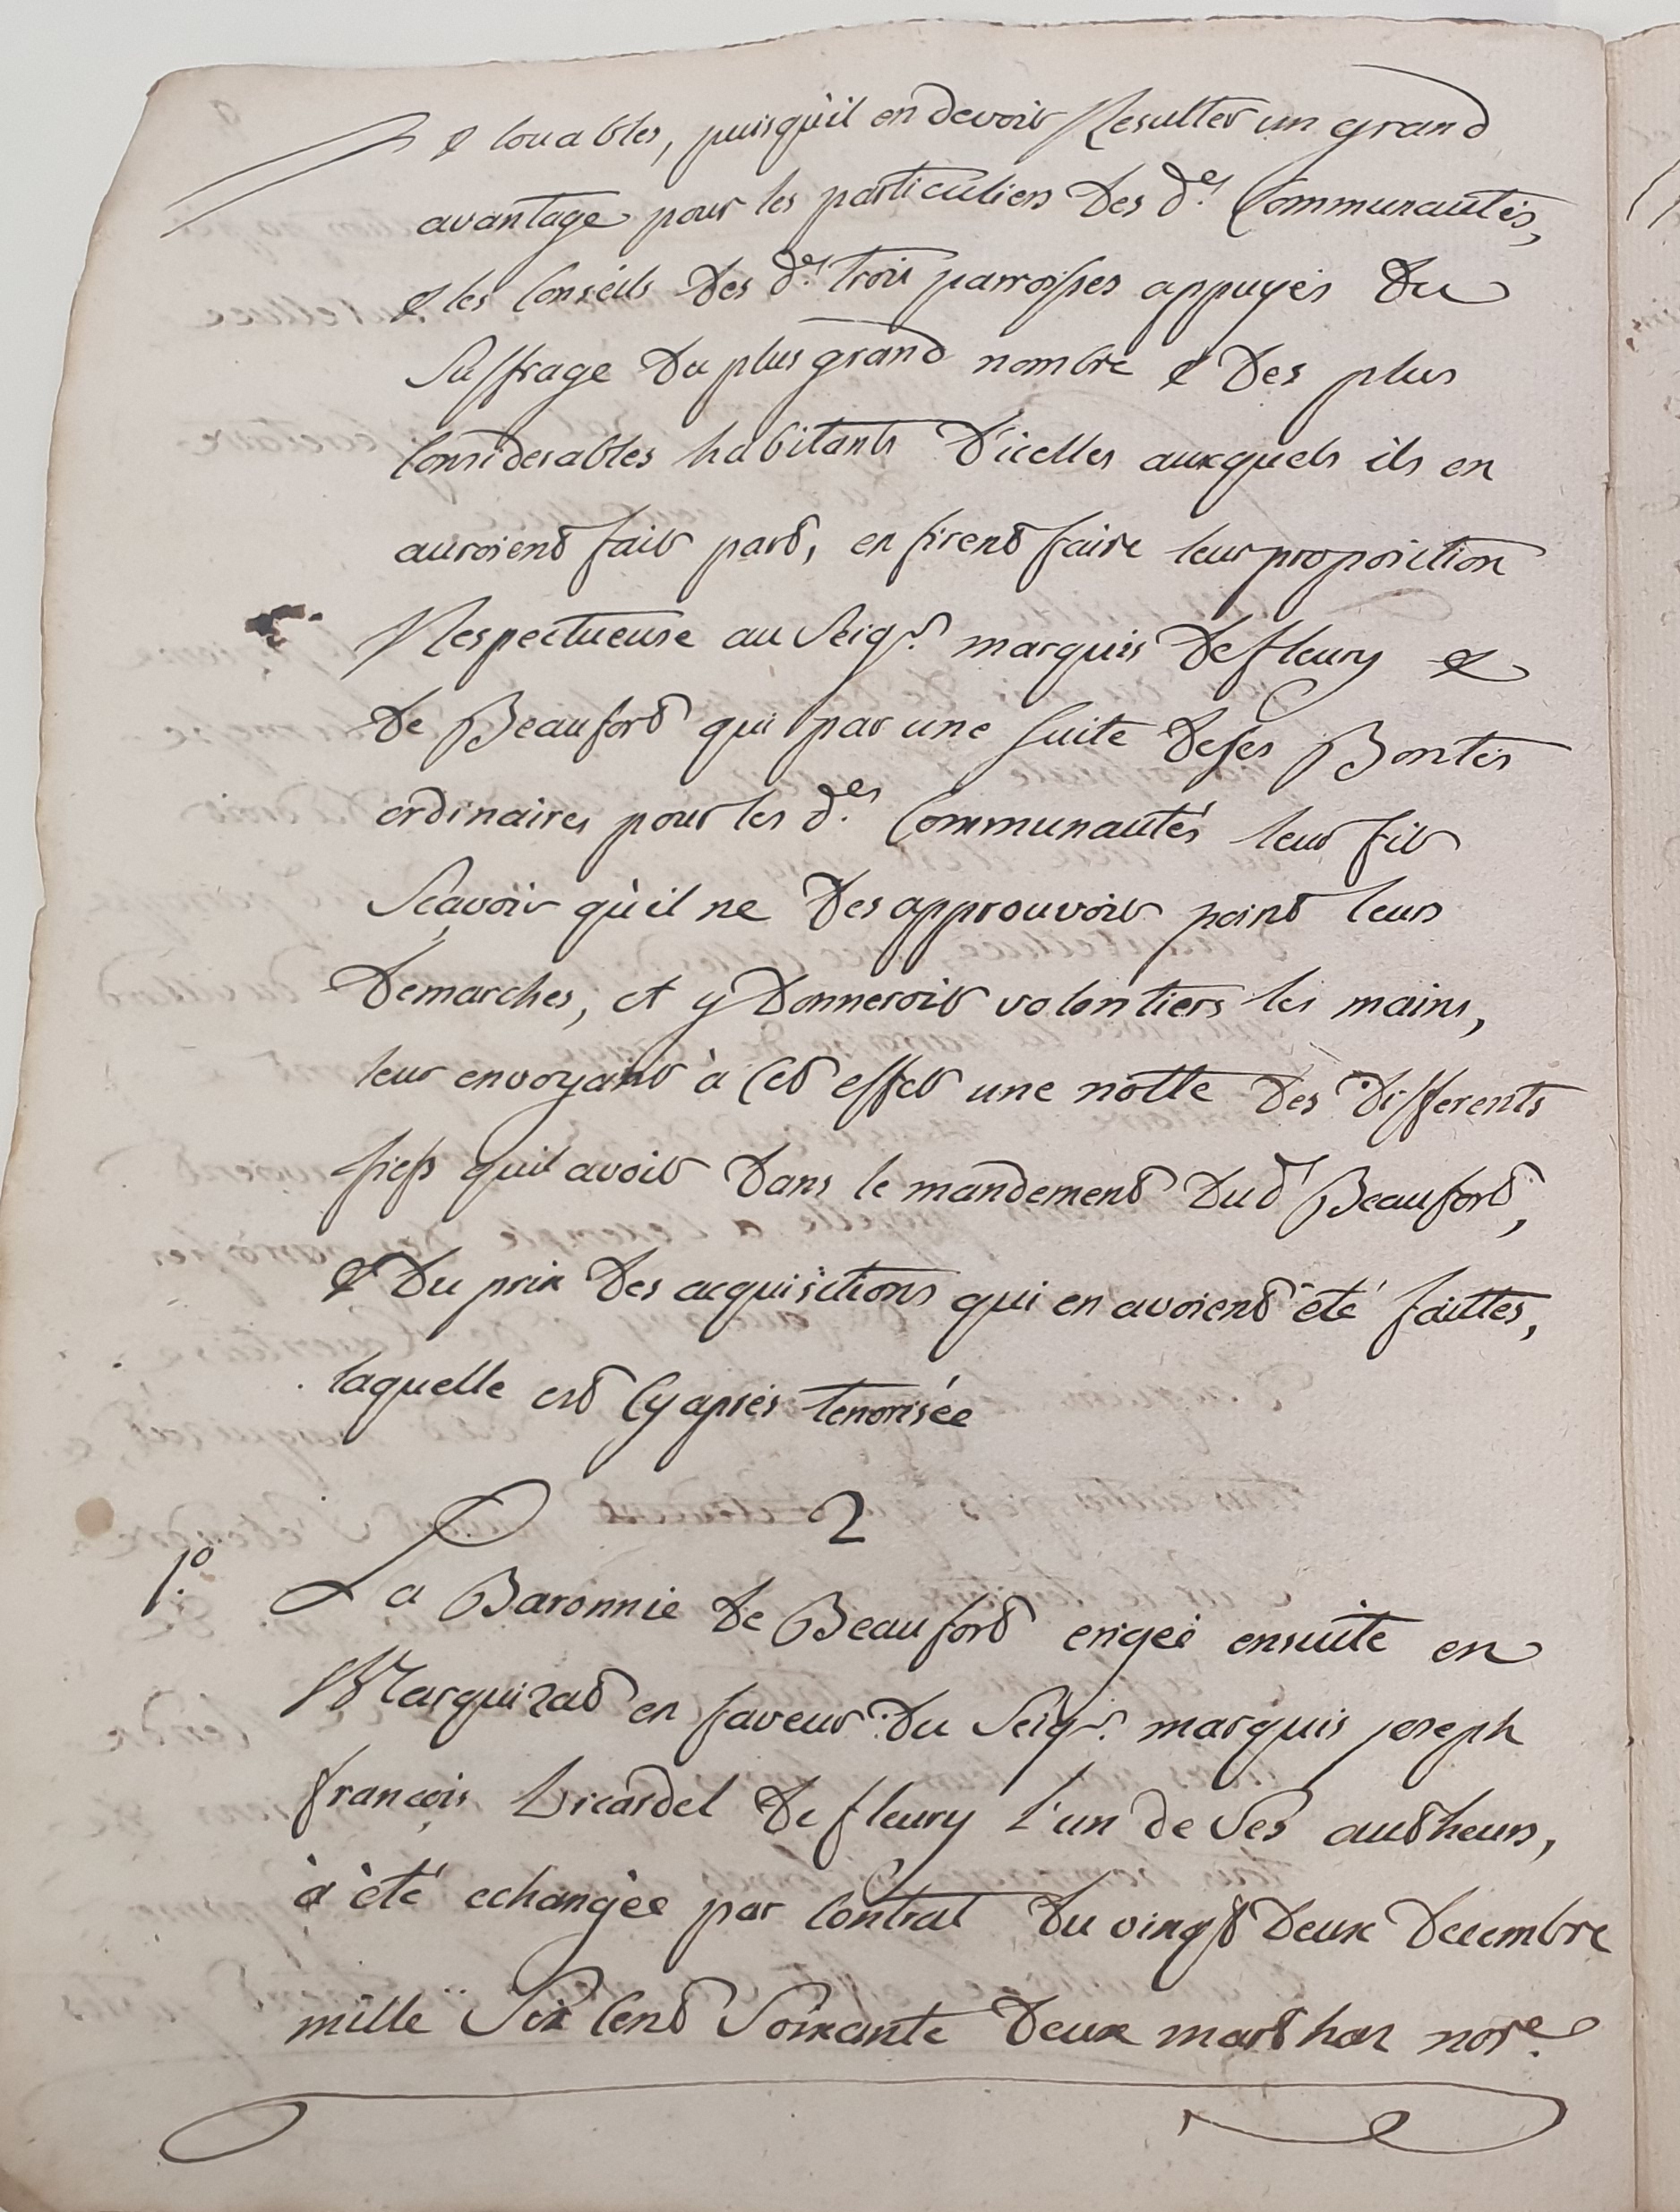 & louables, puisqu'il en devoit Resulter un grand
avantage pour les particuliers des d.es Communautés,
& les Conseils des d.es trois parroisses appuyés du
Suffrage du plus grand nombre & des plus
Considerables habitants d'icelles auxquels ils en
auroient fait part, en firent faire leur proposition
Respectueuse au Seig.r marquis de fleury &
de Beaufort qui par une suite de ses Bontés
ordinaires pour les d.es Communautés leur fit
Sçavoir qu'il ne desapprouvoit point leurs
demarches, et y donneroit volontiers les mains,
leur envoyant à Cet effet une notte des differents
fiefs quil avoit dans le mandement dud.t Beaufort,
& du prix des acquisitions qui en avoient été faittes,
laquelle est Cy aprés tenorisée
2
1.o La Baronnie de Beaufort erigeé ensuite en
Marquizat en faveur du Seig.r marquis joseph
françois Vicardel de fleury l'un de Ses autheurs,
à été echangée par Contrat du vingt deux decembre
mille Six Cent Soixante deux marthon nore.